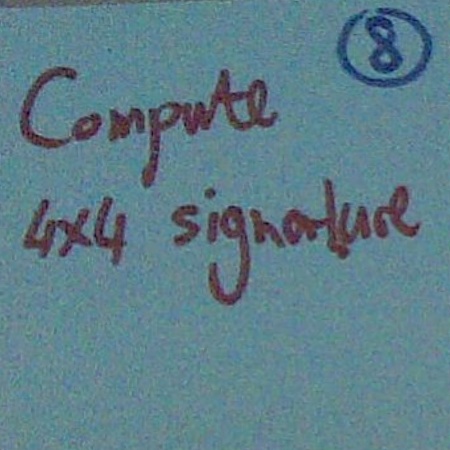 8
Compute
4x4 signature